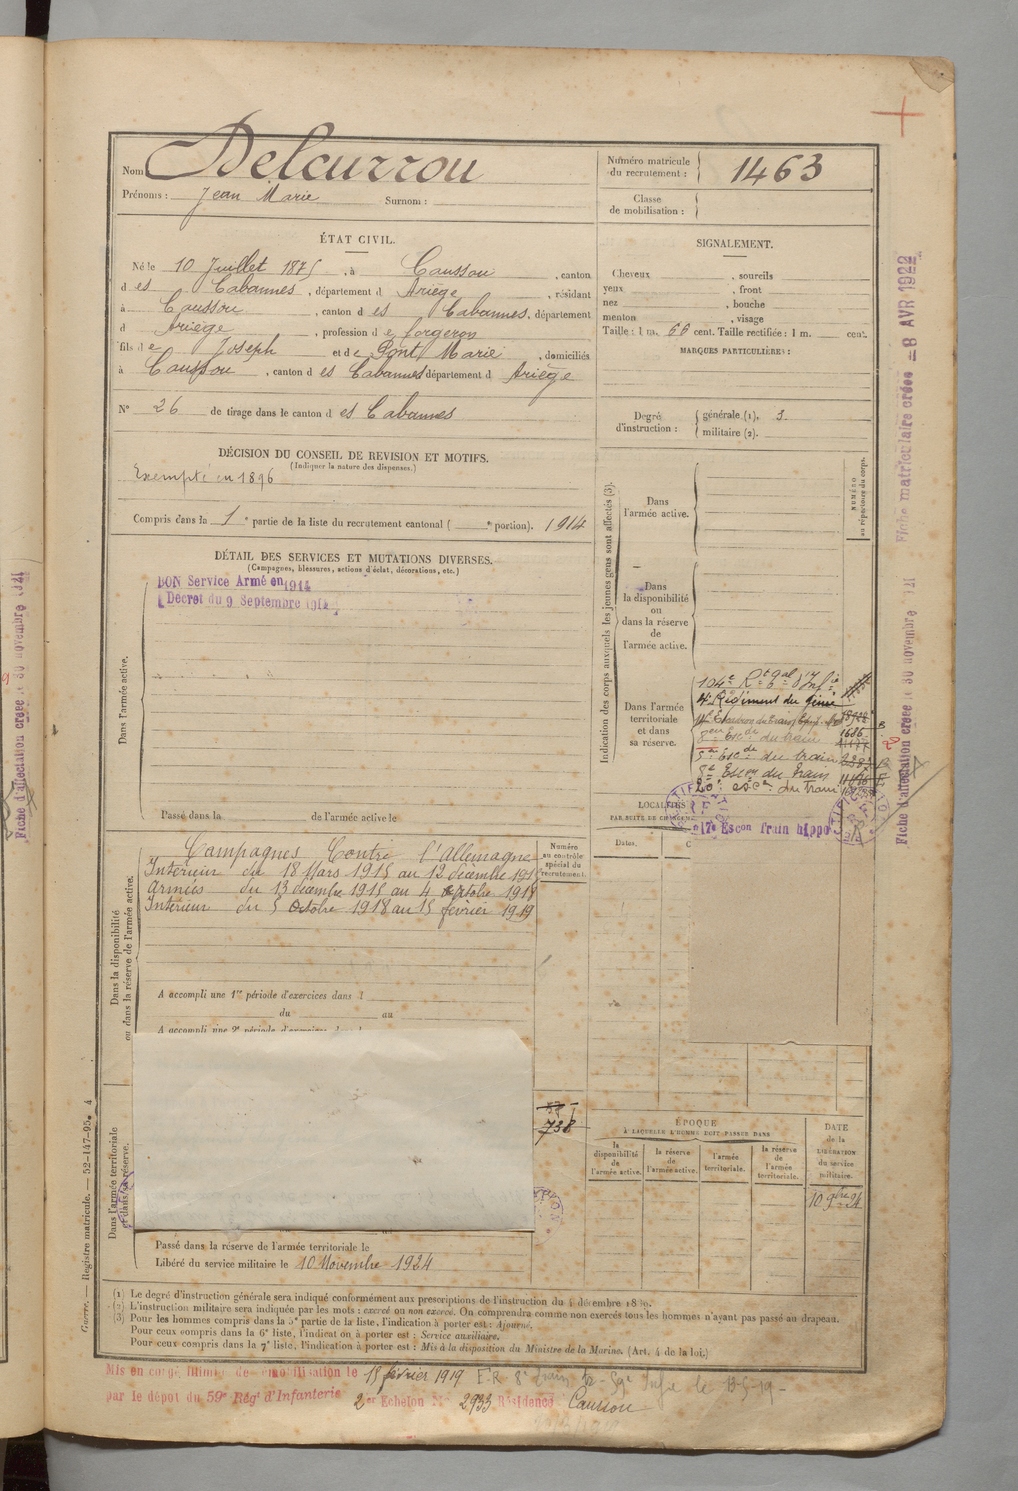 Nom Delcurrou
Prénoms : Jean Marie Surnom :
Numéro matricule du recrutement : 1463
Classe de mobilisation :
ÉTAT CIVIL.
Né le 10 Juillet 1875, à Caussou, canton
d es Cabannes, département d Ariège, résidant
à Caussou, canton d es Cabannes, département
d Ariège, profession d e forgeron
fils d e Joseph et de Pont Marie, domiciliés
à Caussou, canton d es Cabannes département d Ariège
N° 26 de tirage dans le canton d es Cabannes
SIGNALEMENT.
Cheveux , sourcils
yeux , front
nez , bouche
menton , visage
Taille : 1 m. 66 cent. Taille rectifiée : 1 m. cent.
MARQUES PARTICULIÈRES :
Degré d'instruction : générale (1). 3.
militaire (2).
DÉCISION DU CONSEIL DE REVISION ET MOTIFS.
(Indiquer la nature des dispenses.)
Exempté en 1896
Compris dans la 1e partie de la liste du recrutement cantonal ( e portion). 1914
DÉTAIL DES SERVICES ET MUTATIONS DIVERSES.
(Campagnes, blessures, actions d'éclat, décorations, etc.)
BON Service Armé en 1914
[Décret du 9 Septembre 1914]
Dans l'armée active.
Passé dans la de l'armée active le
Indication des corps auxquels les jeunes gens sont affectés (3).
Dans l'armée active.
NUMÉRO au répertoire du corps.
Dans la disponibilité ou dans la réserve de l'armée active.
Dans l'armée territoriale et dans sa réserve.
104e Rt gal d'Infie
4e Régiment du génie
du train
5e Escdon du train
8e Escon du train
20e escon du train
17e Escon train hippo
LOCALITÉS
PAR SUITE DE CHANGEM
Dates.
Dans la disponibilité ou dans la réserve de l'armée active.
Campagnes Contre l'allemagne
Intérieur du 18 Mars 1915 au 12 décembre 1915
Armées du 13 décembre 1915 au 4 octobre 1918
Intérieur du 5 Octobre 1918 au 15 février 1919
Numéro au contrôle spécial du recrutement.
A accompli une 1re période d'exercices dans l
du au
A accompli une 2e période d'exercices dans l
738
Dans l'armée territoriale et dans sa réserve.
ÉPOQUE
À LAQUELLE L'HOMME DOIT PASSER DANS
la disponibilité de l'armée active.
la réserve de l'armée active.
l'armée territoriale.
la réserve de l'armée territoriale.
DATE de la LIBÉRATION du service militaire.
10 9bre 24
Passé dans la réserve de l'armée territoriale le
Libéré du service militaire le 10 Novembre 1924
(1) Le degré d'instruction générale sera indiqué conformément aux prescriptions de l'instruction du 4 décembre 1889.
(2) L'instruction militaire sera indiquée par les mots : exercé ou non exercé. On comprendra comme non exercés tous les hommes n'ayant pas passé au drapeau.
(3) Pour les hommes compris dans la 5e partie de la liste, l'indication à porter est : Ajourné.
Pour ceux compris dans la 6e liste, l'indication à porter est : Service auxiliaire.
Pour ceux compris dans la 7e liste, l'indication à porter est : Mis à la disposition du Ministre de la Marine. (Art. 4 de la loi.)
Mis en congé illimité de démobilisation le 15 février 1919
par le dépôt du 59e Régt d'Infanterie 2er Echelon N° 2933 Résidence Caussou
Guerre. — Registre matricule. — 52-147-95. 4
Fiche matriculaire créée — 8 AVR 1922
Fiche d'affectation créée le 30 novembre 1921
Fiche d'affectation créée le 30 novembre 1921